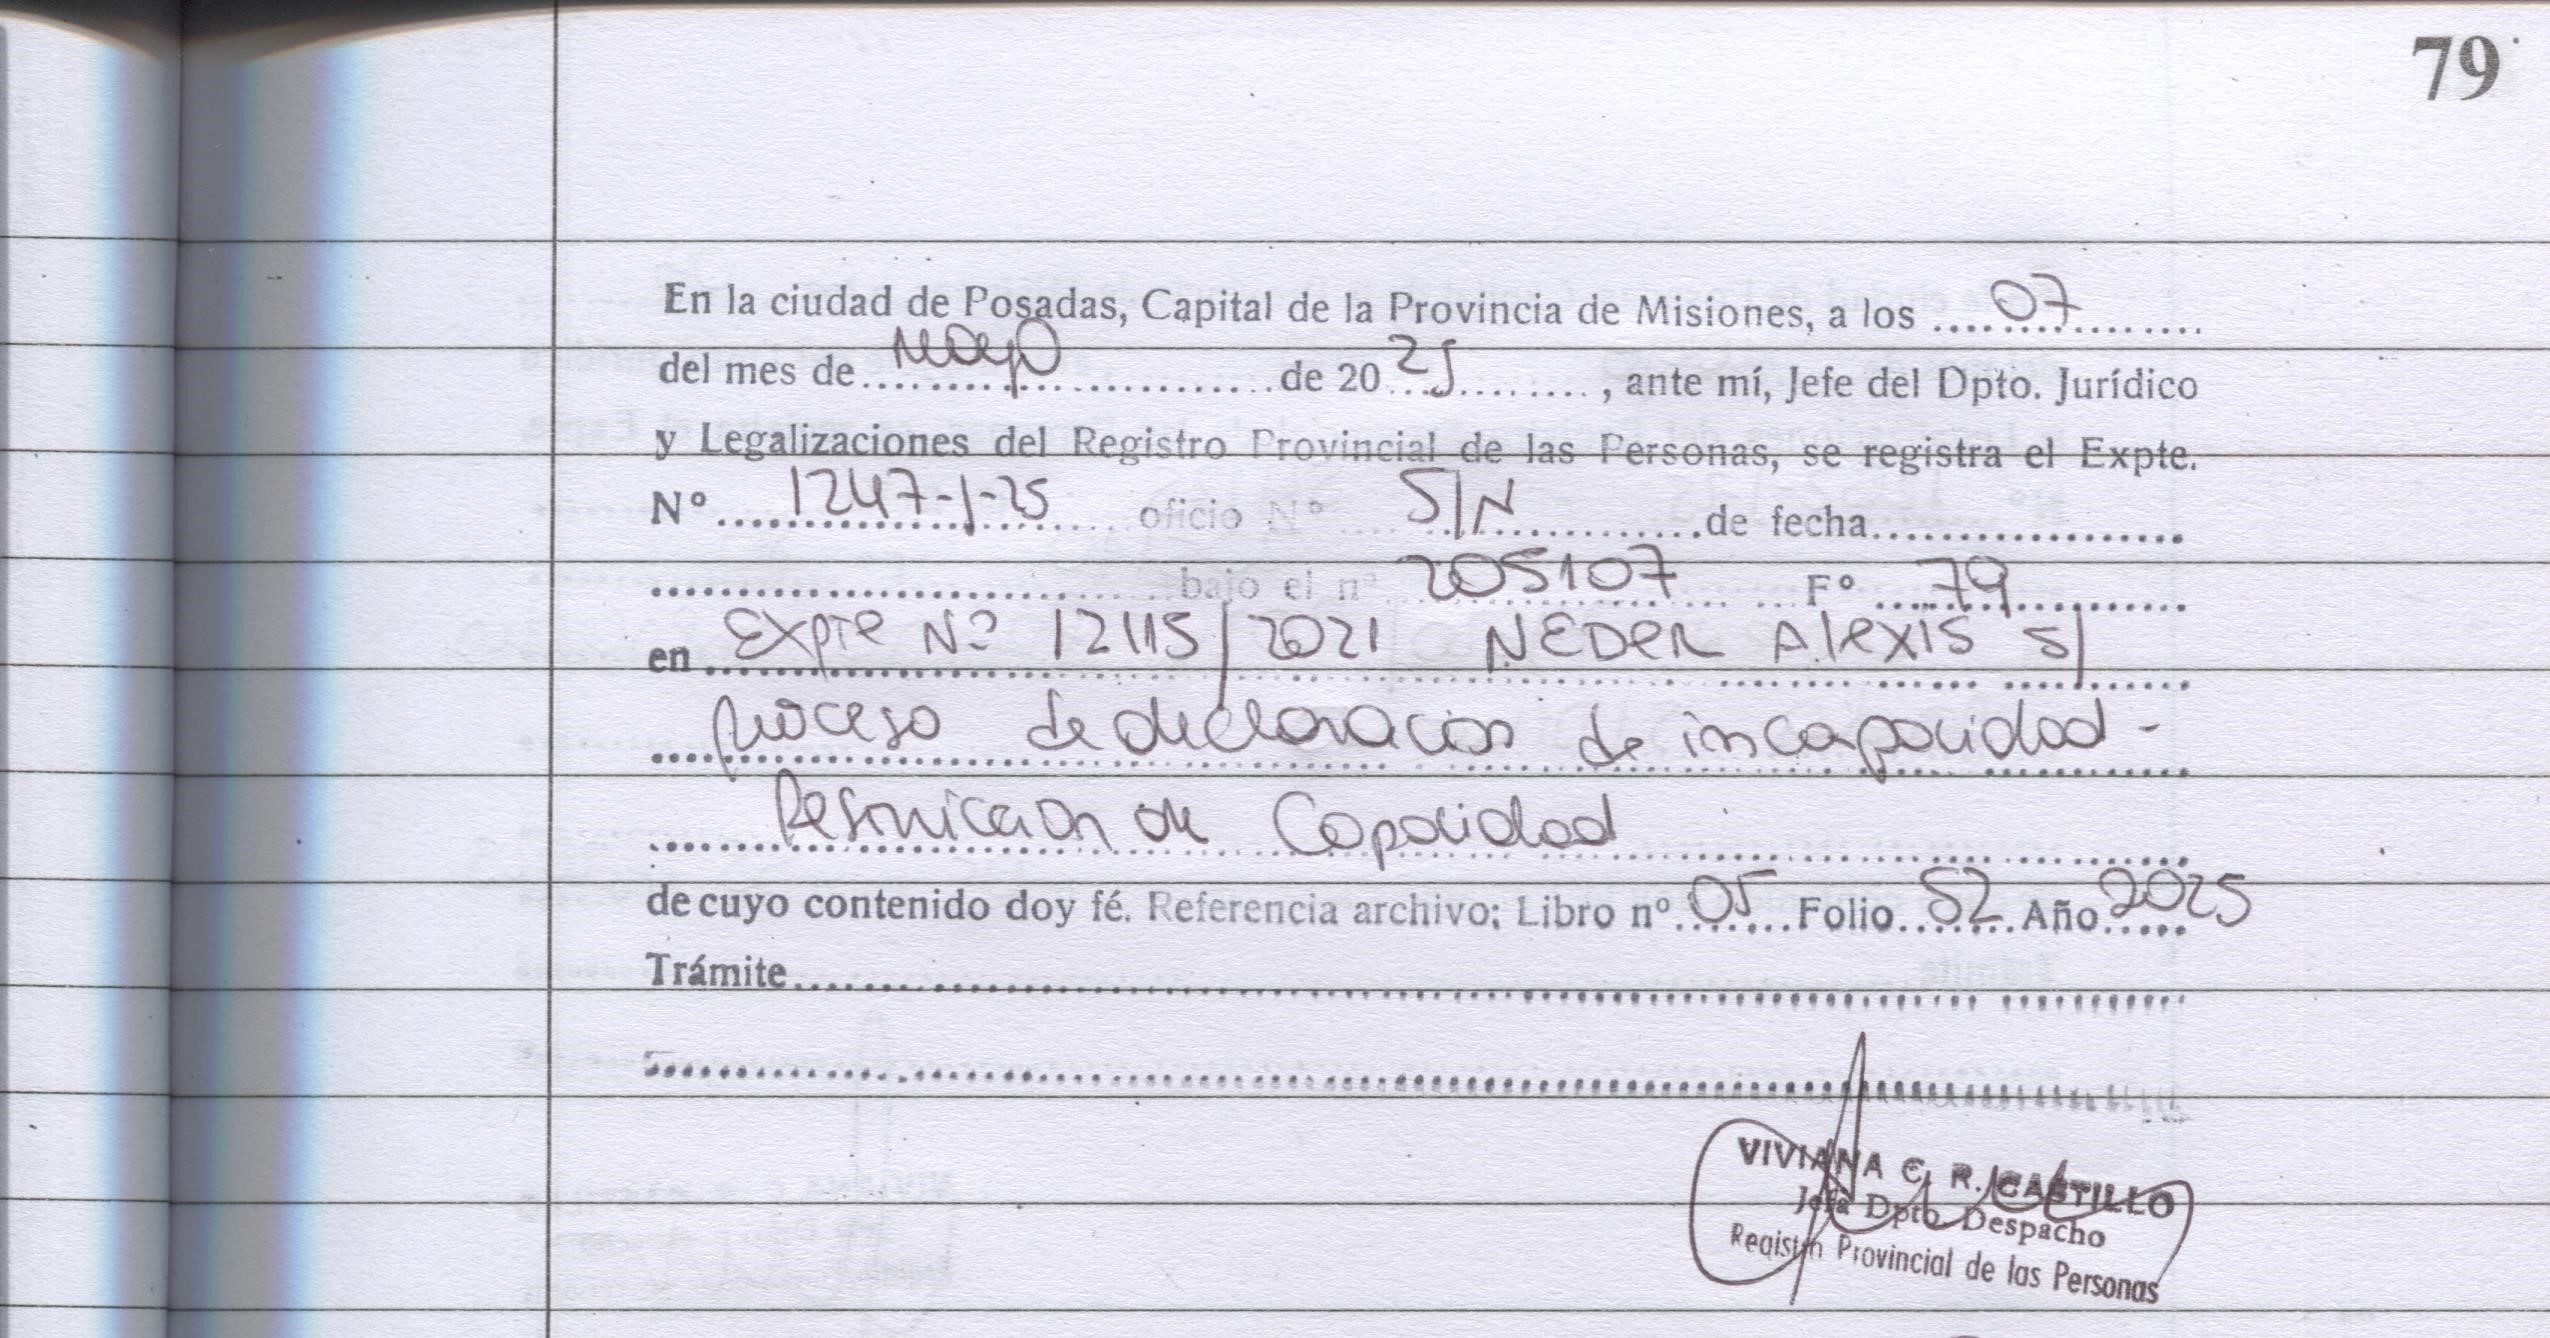 79
En la ciudad de Posadas, Capital de la Provincia de Misiones, a los 07
del mes de mayo de 2025, ante mí, Jefe del Dpto. Jurídico
y Legalizaciones del Registro Provincial de las Personas, se registra el Expte.
Nº 1247-J-25 oficio Nº S/N de fecha
bajo el nº 205107 Fº 79
en Expte Nº 12115/2021 NEDER Alexis s/
proceso de declaracion de incapacidad -
de Capacidad
de cuyo contenido doy fé. Referencia archivo; Libro nº 05 Folio 52 Año 2025
Trámite
VIVIANA C. R. CASTILLO
Jefa Dpto Despacho
Registro Provincial de las Personas